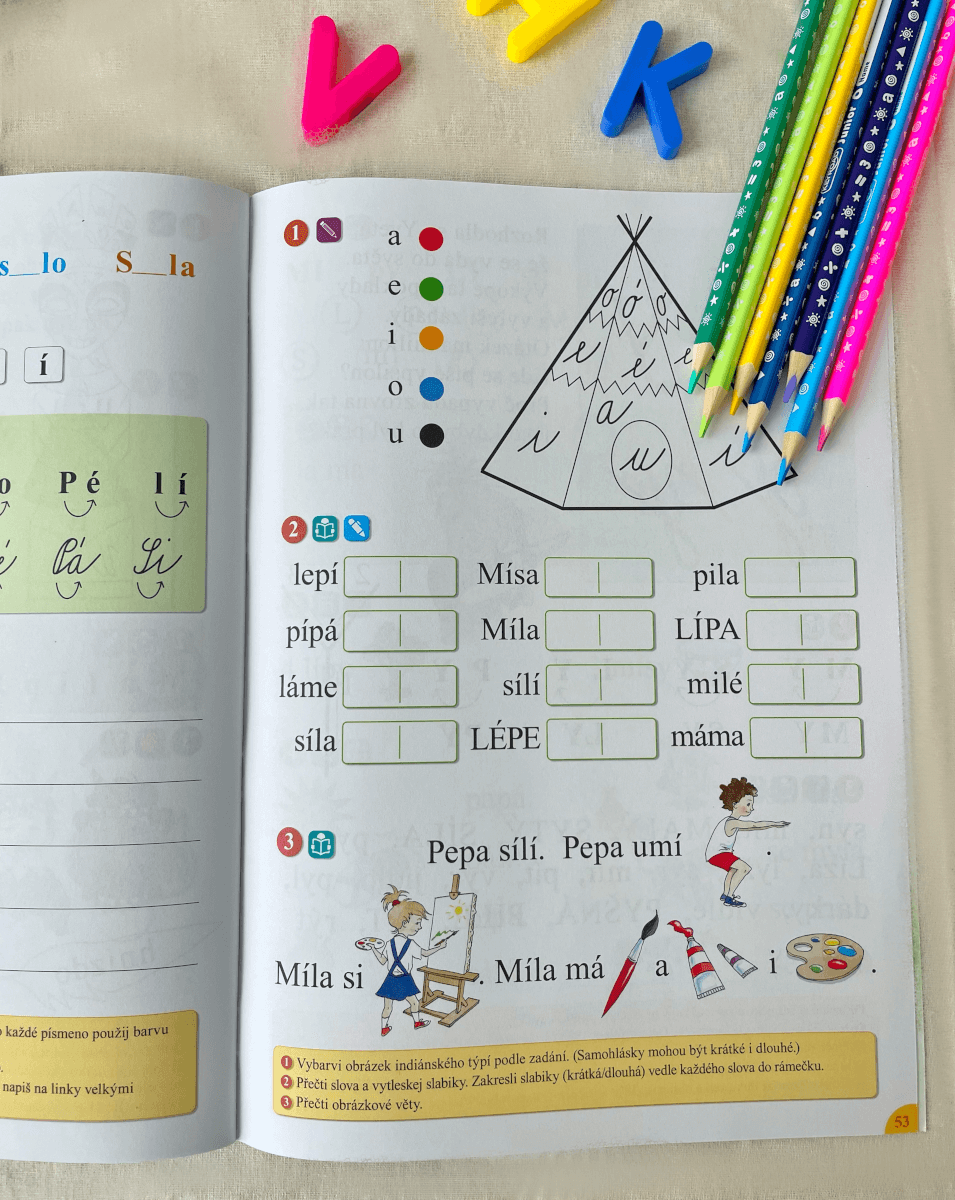 s__lo S__la
í
o Pé lí
é Pá Li
o každé písmeno použij barvu
napiš na linky velkými
V K
1
a
e
i
o
u
o ó o
e é e
i a i
u
2
lepí Mísa pila
pípá Míla LÍPA
láme sílí milé
síla LÉPE máma
3
Pepa sílí. Pepa umí .
Míla si . Míla má a i .
1 Vybarvi obrázek indiánského týpí podle zadání. (Samohlásky mohou být krátké i dlouhé.)
2 Přečti slova a vytleskej slabiky. Zakresli slabiky (krátká/dlouhá) vedle každého slova do rámečku.
3 Přečti obrázkové věty.
53